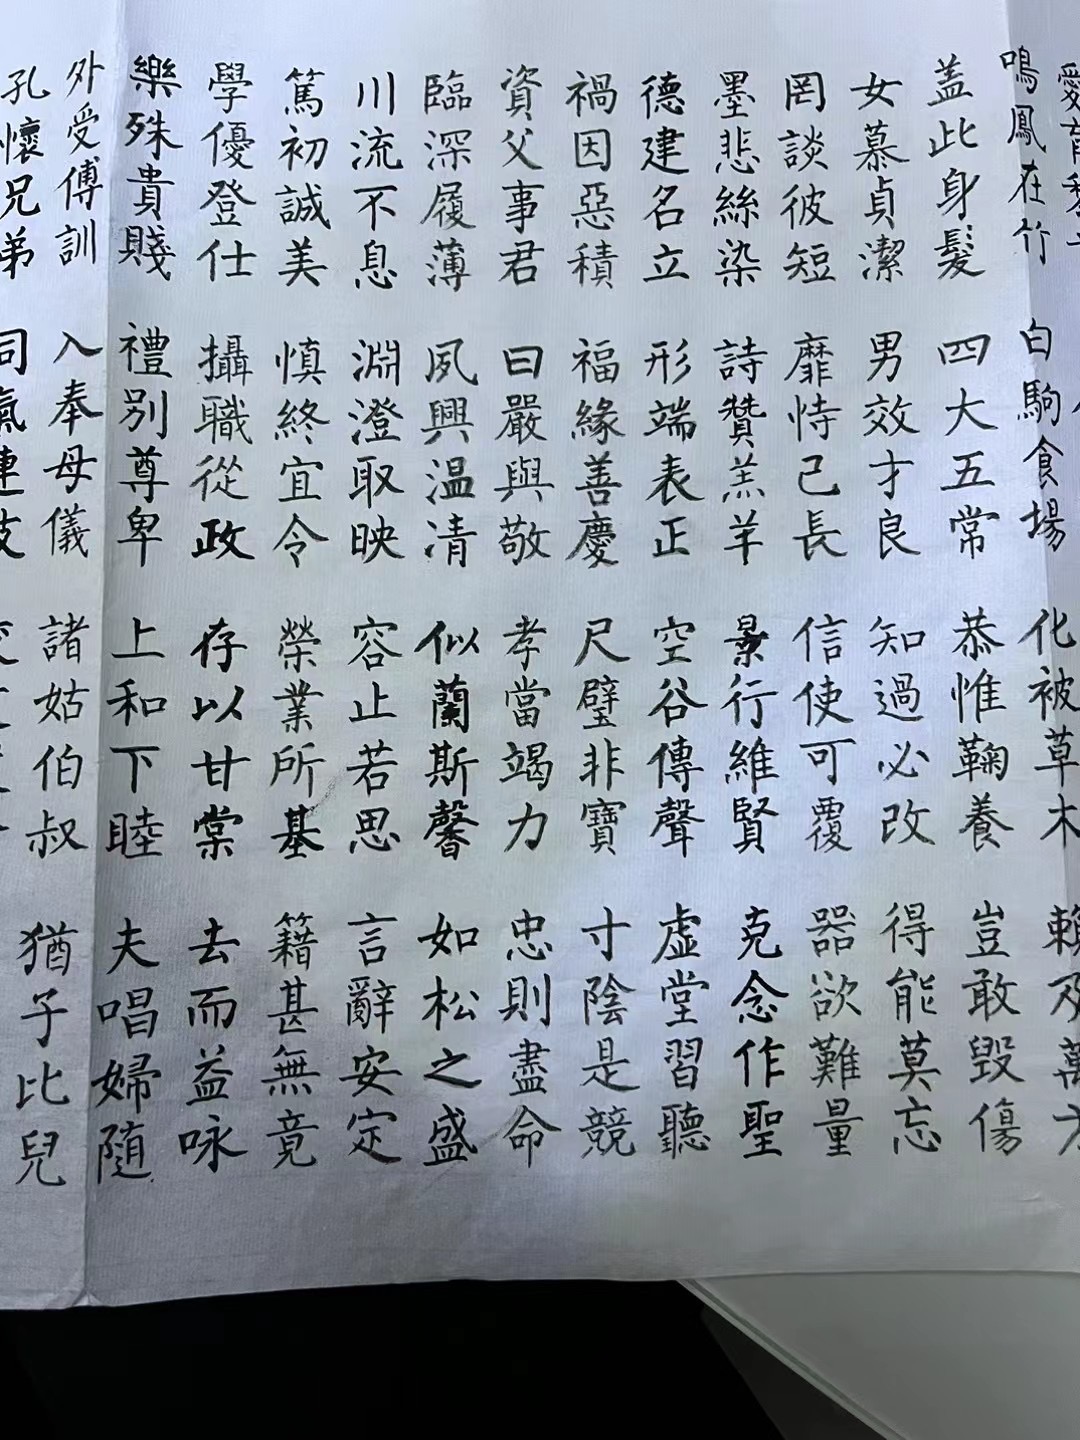 愛育黎
鳴鳳在竹 白駒食場 化被草木 賴及萬方
盖此身髮 四大五常 恭惟鞠養 豈敢毀傷
女慕貞潔 男效才良 知過必改 得能莫忘
罔談彼短 靡恃己長 信使可覆 器欲難量
墨悲絲染 詩贊羔羊 景行維賢 克念作聖
德建名立 形端表正 空谷傳聲 虛堂習聽
禍因惡積 福緣善慶 尺璧非寶 寸陰是競
資父事君 曰嚴與敬 孝當竭力 忠則盡命
臨深履薄 夙興温清 似蘭斯馨 如松之盛
川流不息 淵澄取映 容止若思 言辭安定
篤初誠美 慎終宜令 榮業所基 籍甚無竟
學優登仕 攝職從政 存以甘棠 去而益咏
樂殊貴賤 禮別尊卑 上和下睦 夫唱婦隨
外受傅訓 入奉母儀 諸姑伯叔 猶子比兒
孔懷兄弟 同氣連枝